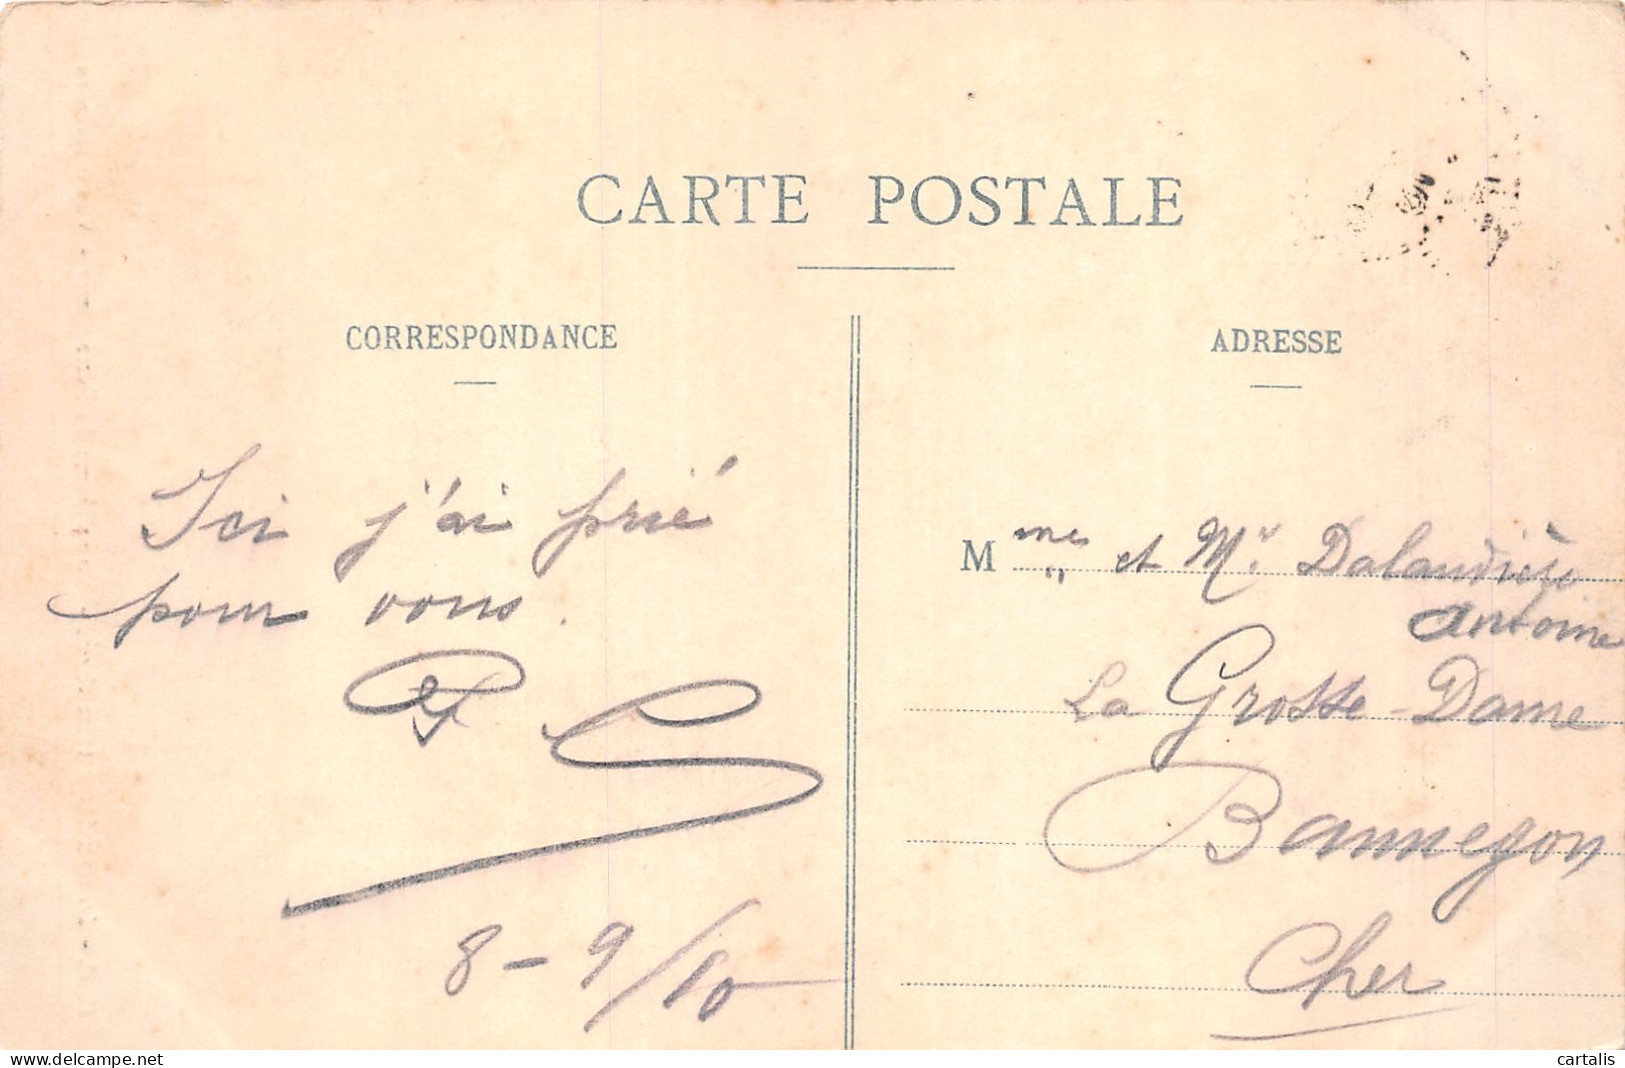 CARTE POSTALE
CORRESPONDANCE
ADRESSE
Ici j'ai prié
pour vous.
8-9/10
Mmes et Mr. Dalaudière
Antoine
La Grosse-Dame
Bannegon
Cher
cartalis